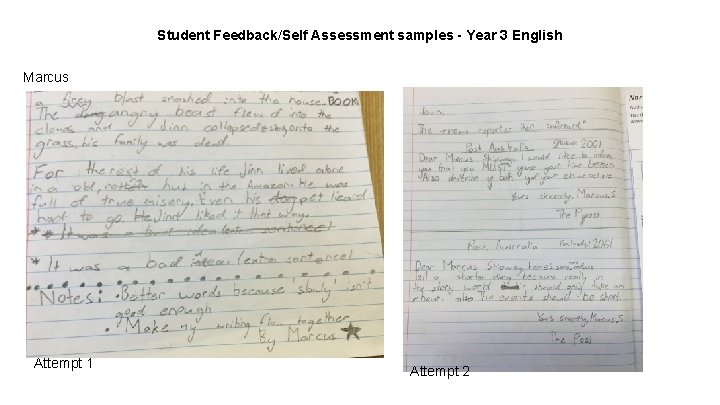 Student Feedback/Self Assessment samples - Year 3 English
Marcus
a firey blast smashed into the house. BOOM
The angry beast flew of into the
clouds and Jinn collapsed onto the
grass, his family was dead.
For the rest of his life Jinn lived alone
in a old, hut in the Amazon. He was
full of true misery. Even his pet lizard
had to go. He liked it that way.
** It was a bad idea (extra sentence)
* It was a bad idea (extra sentence)
Notes: • Better words because 'slowly' isn't
good enough
• Make my writing flow together
By Marcus
Attempt 1
down.
The reporter then informed"
Post Australia 2001
Dear Marcus I would like to inform
you that you MUST! your line better
Also describe of both of your characters
Yours sincerely, Marcus.S
The Ppost
Post, Australia 2061
Dear Marcus here's some
a shorter story because really in
the work word should only take an
hour. also The events should be short.
Yours sincerely, Marcus.S
The Post
Attempt 2